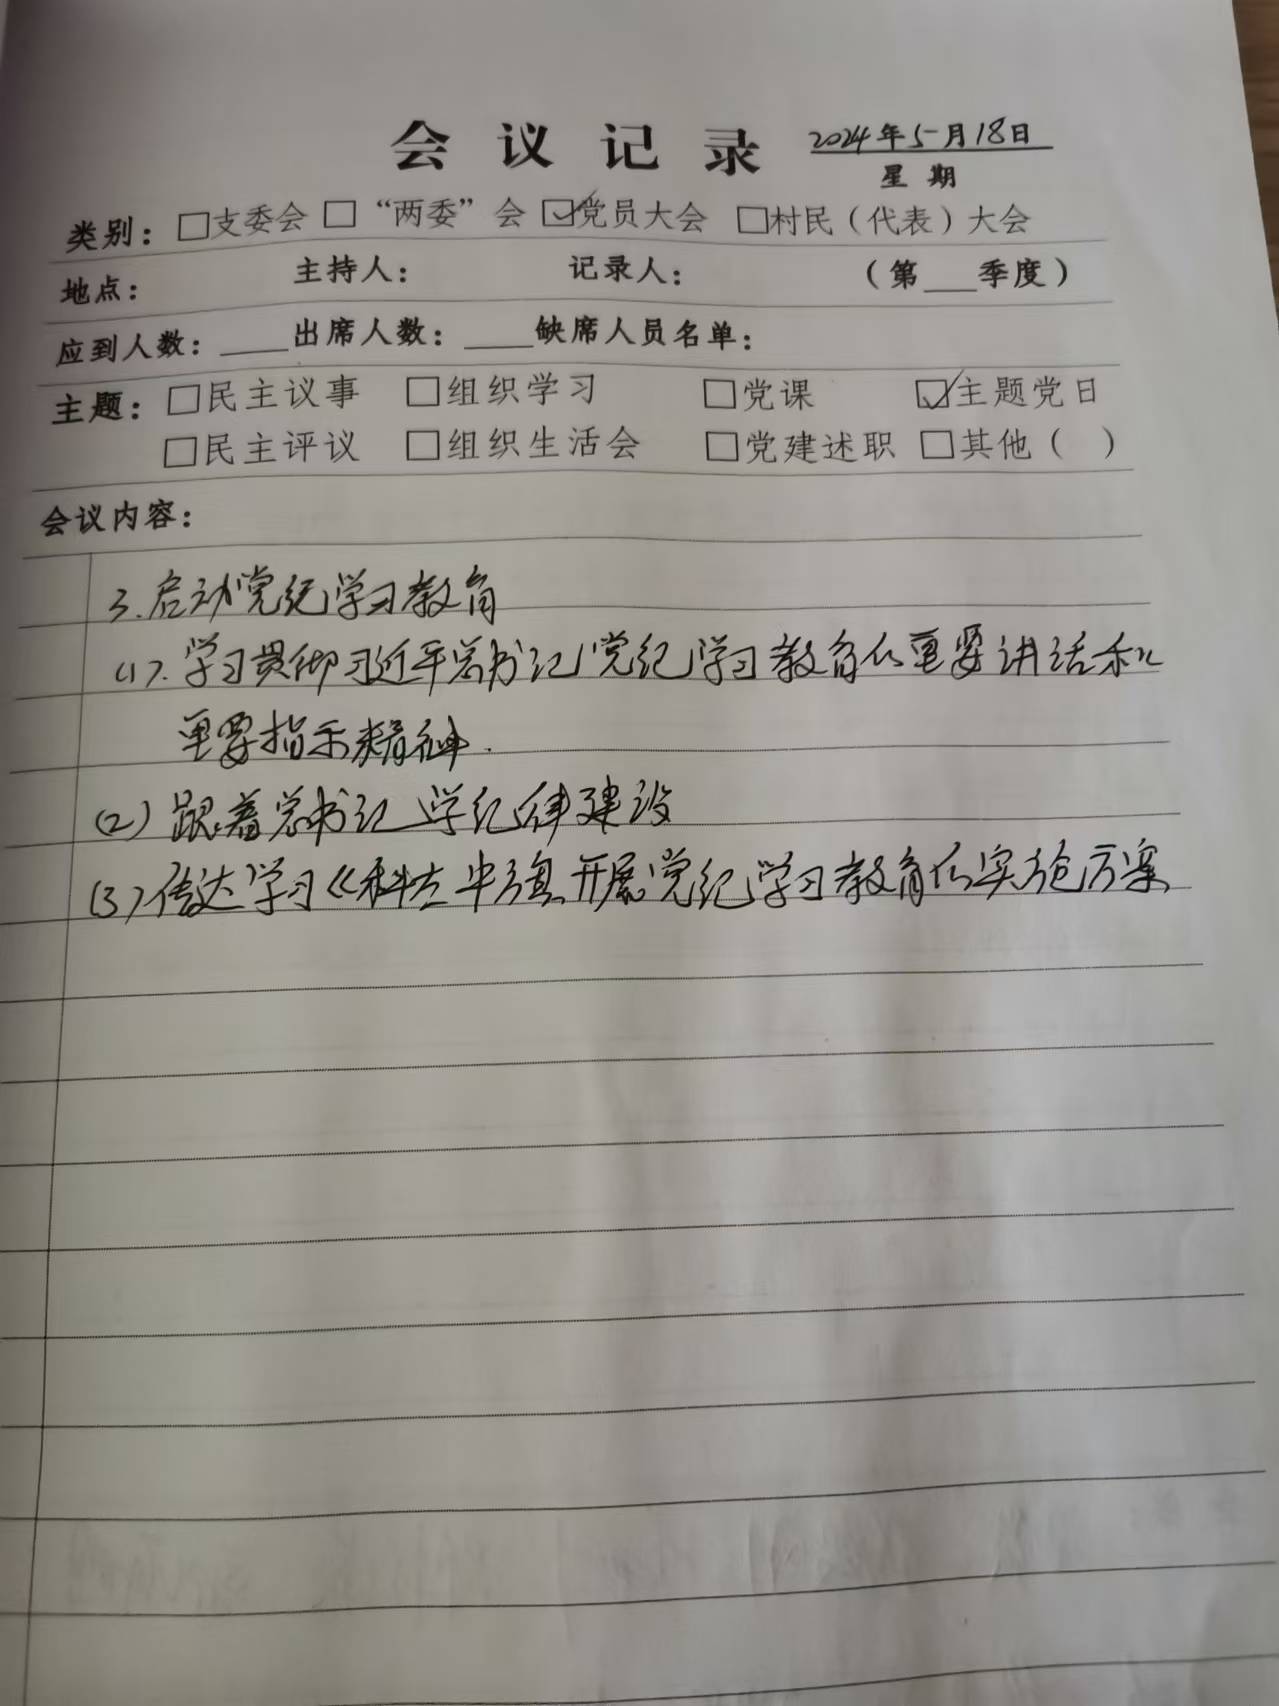 会议记录 2024年5月18日
星期
类别：□支委会 □“两委”会 ☑党员大会 □村民（代表）大会
地点： 主持人： 记录人： （第___季度）
应到人数：____出席人数：____缺席人员名单：
主题：□民主议事 □组织学习 □党课 ☑主题党日
□民主评议 □组织生活会 □党建述职 □其他（ ）
会议内容：
3.启动党纪学习教育
(1).学习贯彻习近平总书记党纪学习教育的重要讲话和
重要指示精神.
(2)跟着总书记学纪律建设
(3)传达学习《科左中旗开展党纪学习教育的实施方案